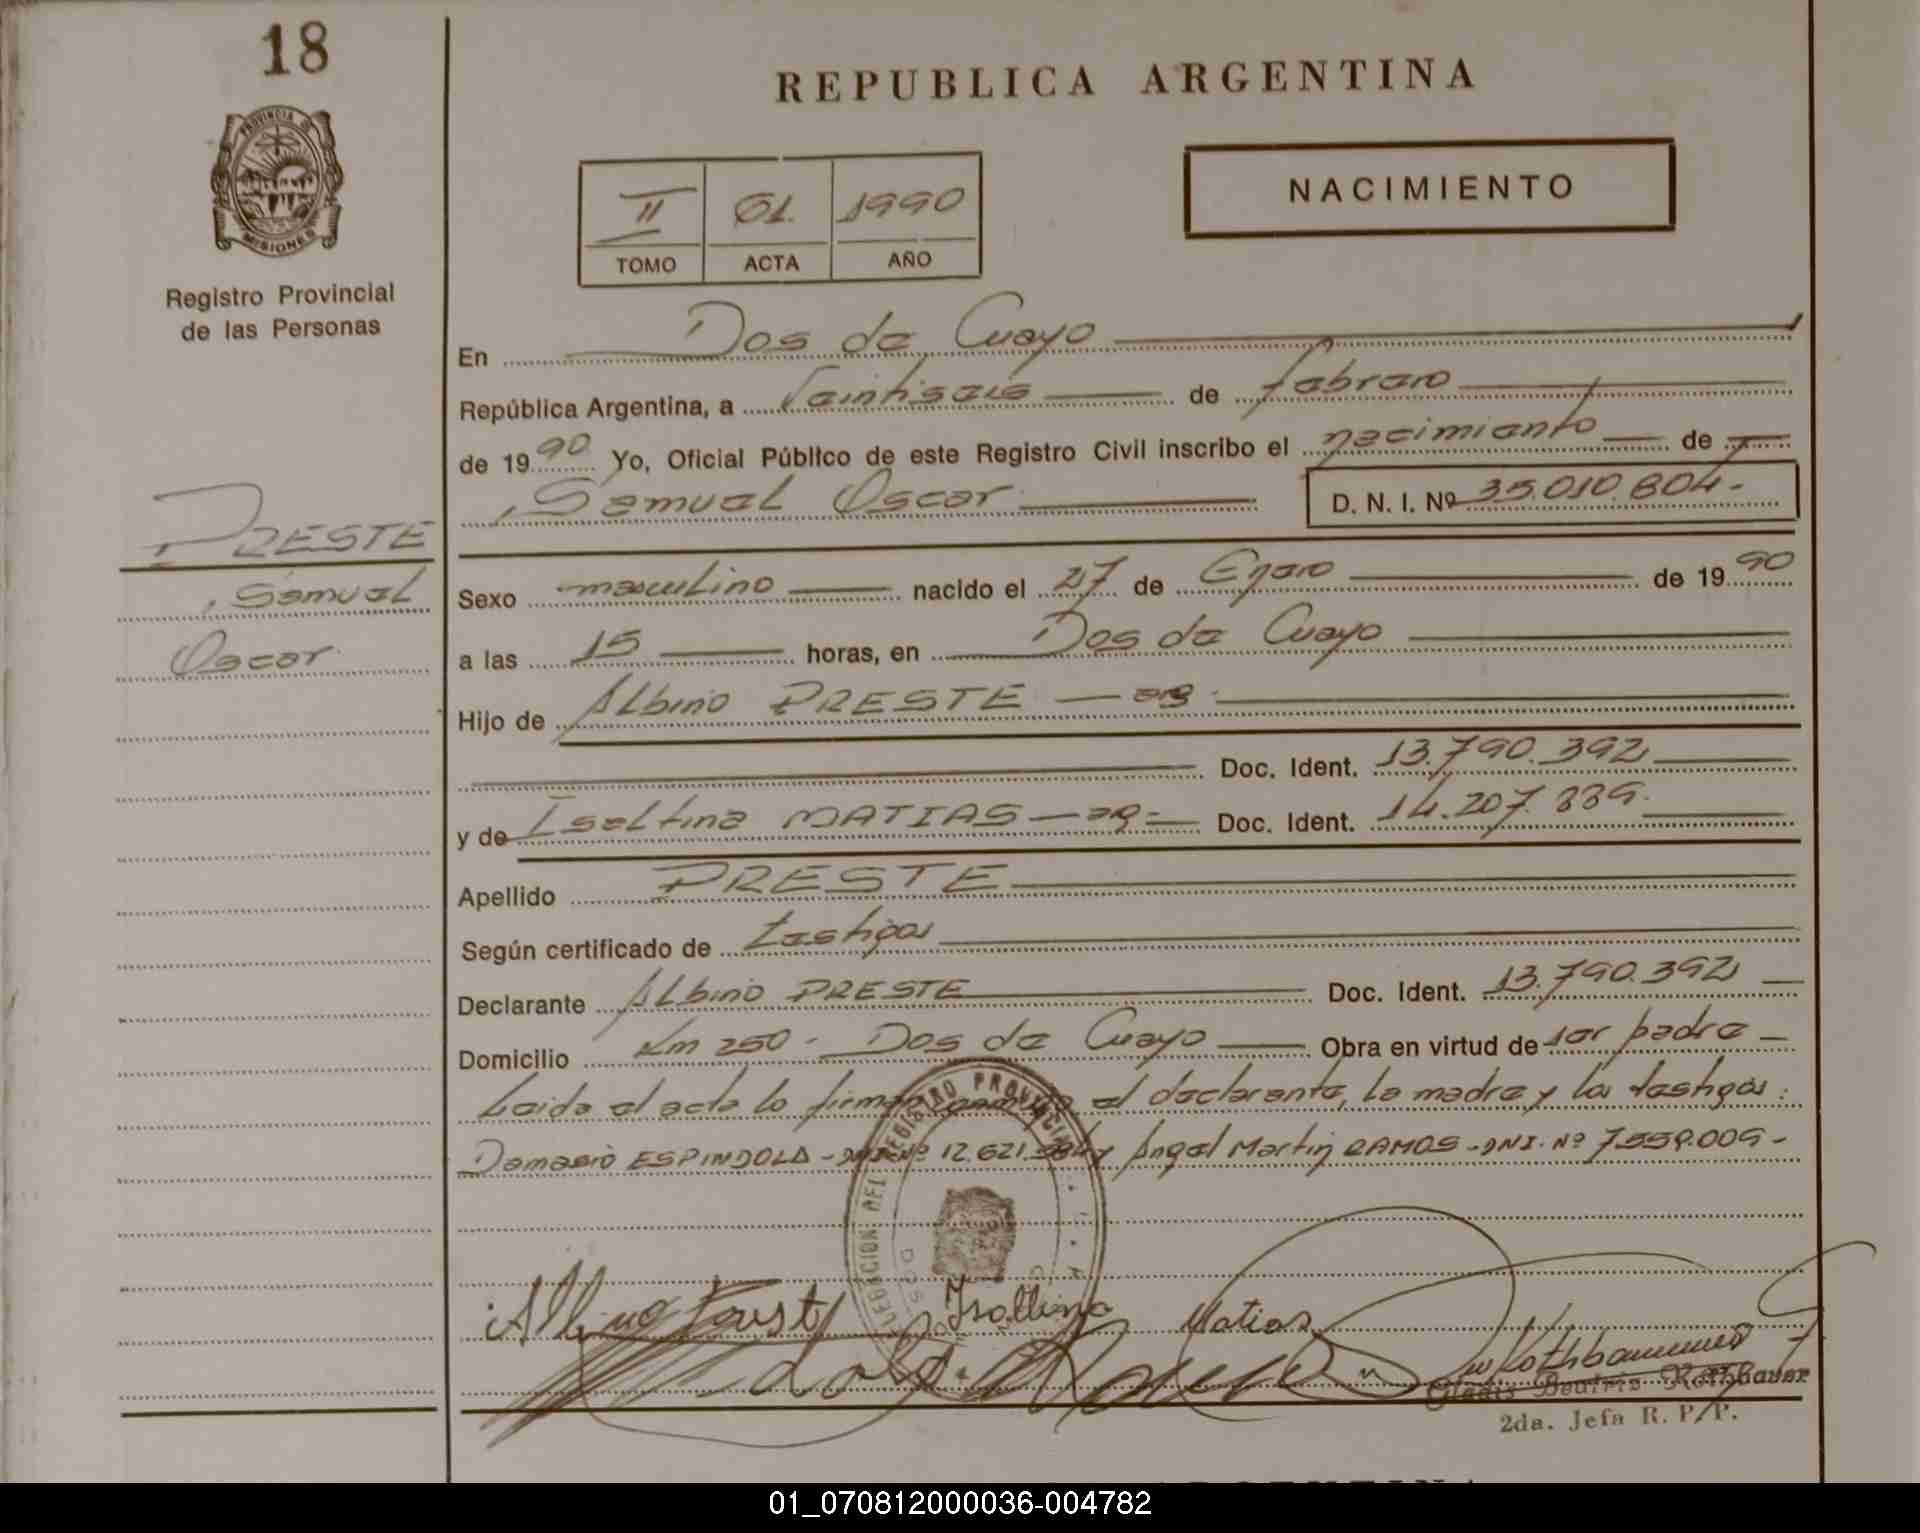 18
REPUBLICA ARGENTINA
PROVINCIA DE
MISIONES
Registro Provincial
de las Personas
NACIMIENTO
II 61. 1990
TOMO ACTA AÑO
En Dos de Mayo
República Argentina, a Veintiseis de febrero
de 1990 Yo, Oficial Público de este Registro Civil inscribo el nacimiento de
Samuel Oscar D. N. I. Nº 35.010.804-
PRESTE
Samuel
Oscar
Sexo masculino nacido el 27 de Enero de 1990
a las 15 horas, en Dos de Mayo
Hijo de Albino PRESTE - arg.
Doc. Ident. 13.790.392
y de Iseltina MATIAS - arg - Doc. Ident. 14.207.839.
Apellido PRESTE
Según certificado de testigos
Declarante Albino PRESTE Doc. Ident. 13.790.392
Domicilio Km 250 - Dos de Mayo Obra en virtud de ser padre
Leida el acta lo firman el declarante, la madre y los testigos:
Damasio ESPINDOLA - DNI. Nº 12.621. y Angel Martin RAMOS - DNI. Nº 7.559.009 -
REGISTRO PROVINCIAL
Matias
Gladis Beatris Rothbauer
2da. Jefa R. P. P.
01_070812000036-004782